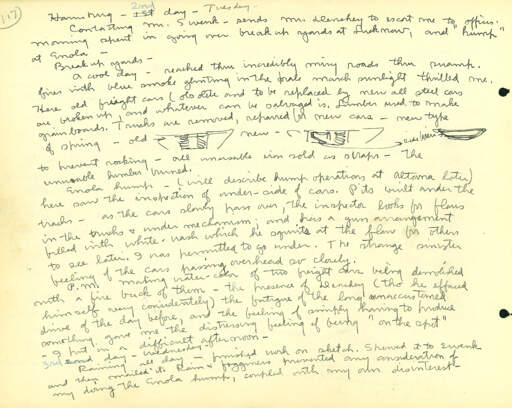 (117)
Harrisburg - 2nd day - Tuesday.
Contacting Mr. Swenk - sends Mr. to escort me to office.
morning spent in going over break up yards at Lucknow, and "hump"
at Enola -
Break up yards -
A cool day - reached thru incredibly miry roads thru swamp.
fires with blue smoke glinting in the pale march sunlight thrilled me.
Here old freight cars (obsolete and to be replaced by new all steel cars
are broken up, and whatever can be salvaged is. Lumber used to make
grain boards. Trucks are removed, repaired for new cars - new type
of spring - old - new -
to prevent rocking - all unusable iron sold as scraps - The
unusable lumber burned.
Enola hump - (will describe hump operations at Altoona later)
here saw the inspection of under-side of cars. Pits built under the
tracks - as the cars slowly pass over, the inspector looks for flaws
in the trucks & under mechanism; and has a gun arrangement
filled with white-wash which he squirts at the flaw for others
to see later. I was permitted to go under. The strange sinister
feeling of the cars passing overhead so closely.
P.M. making water-color of two freight cars being demolished
with a fire back of them - the presence of (tho he effaced
himself very considerately) the fatigue of the long unaccustomed
drive of the day before, and the feeling of simply having to produce
something, gave me the distressing feeling of being "on the spit"
- I put in a difficult afternoon -
3rd day - Wednesday -
Raining all day - finished work on sketch. Showed it to Swenk
and then mailed it. Rain & fogginess prevented any consideration of
my doing the Enola hump, coupled with my own disinterest -